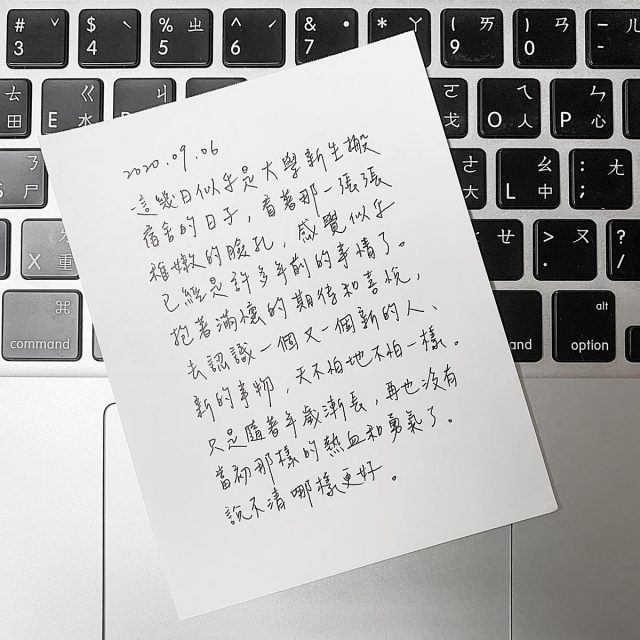 # 3 ˇ
$ 4 ˋ
% 5 ㄓ
^ 6 ˊ
& 7 ˙
* ㄚ
( 9 ㄞ
) 0 ㄢ
-
ㄊ 田
E ㄍ 水
ㄐ
ㄛ 戈
O ㄟ 人
P ㄣ 心
ㄋ S 尸
ㄠ 大
L ㄤ 中
: ;
X 重
ㄝ <
> ㄡ
?
⌘ command
⌘ command
alt option
2020.09.06
這幾日似乎是大學新生搬
宿舍的日子，看著那一張張
稚嫩的臉孔，感覺似乎
已經是許多年前的事情了。
抱著滿懷的期待和喜悅，
去認識一個又一個新的人、
新的事物，天不怕地不怕一樣。
只是隨著年歲漸長，再也沒有
當初那樣的熱血和勇氣了。
說不清哪樣更好。